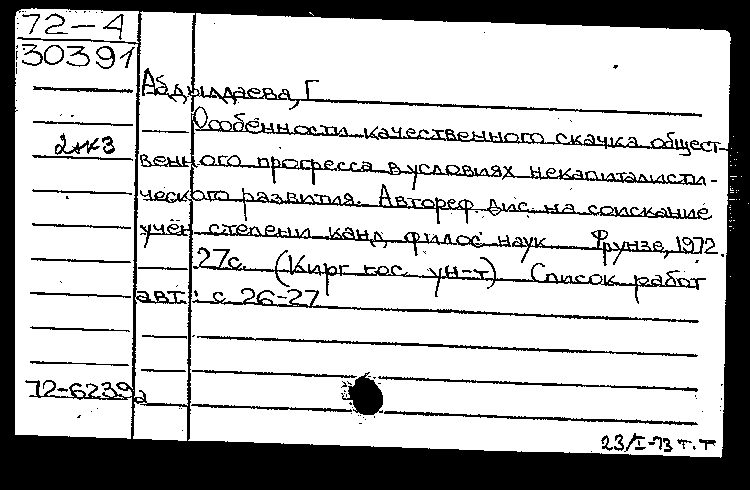 72-4
30391
Абдылдаева, Г
Особенности качественного скачка общест-
2нк3
венного прогресса в условиях некапиталисти-
ческого развития. Автореф. дис. на соискание
учен степени канд. филос. наук Фрунзе, 1972.
27с. (Кирг гос. ун-т) Список работ
авт.: с 26-27
72-6239а
23/I-73 т.т